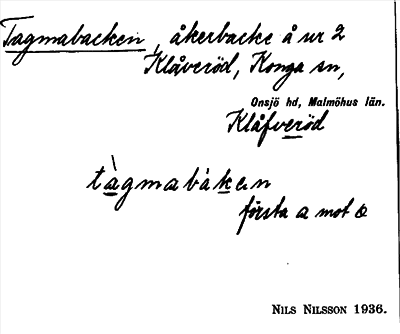 Tagmabacken, åkerbacke å nr 2
Klåveröd, Konga sn,
Onsjö hd, Malmöhus län.
Klåfveröd
tàgmabákan
första a mot o
NILS NILSSON 1936.